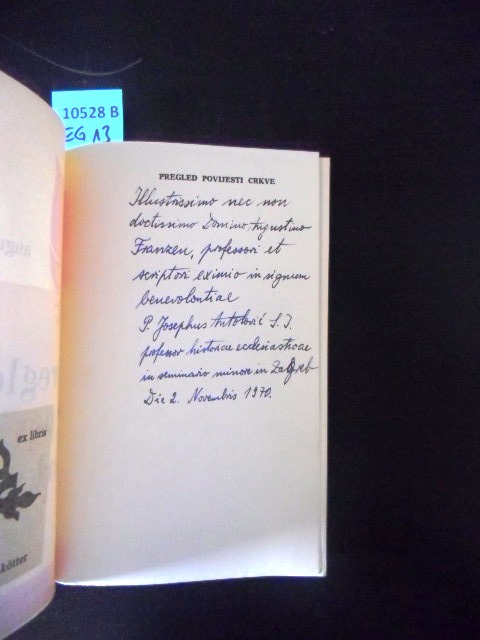 10528 B
EG 13
PREGLED POVIJESTI CRKVE
Illustrissimo nec non
doctissimo Domino Augustino
Franzen, professori et
scriptori eximio in signum
benevolentiae
P. Josephus Antolović S. I.
professor historiae ecclesiasticae
in seminario minore in Zagreb
Die 2. Novembris 1970.
ex libris
kötter